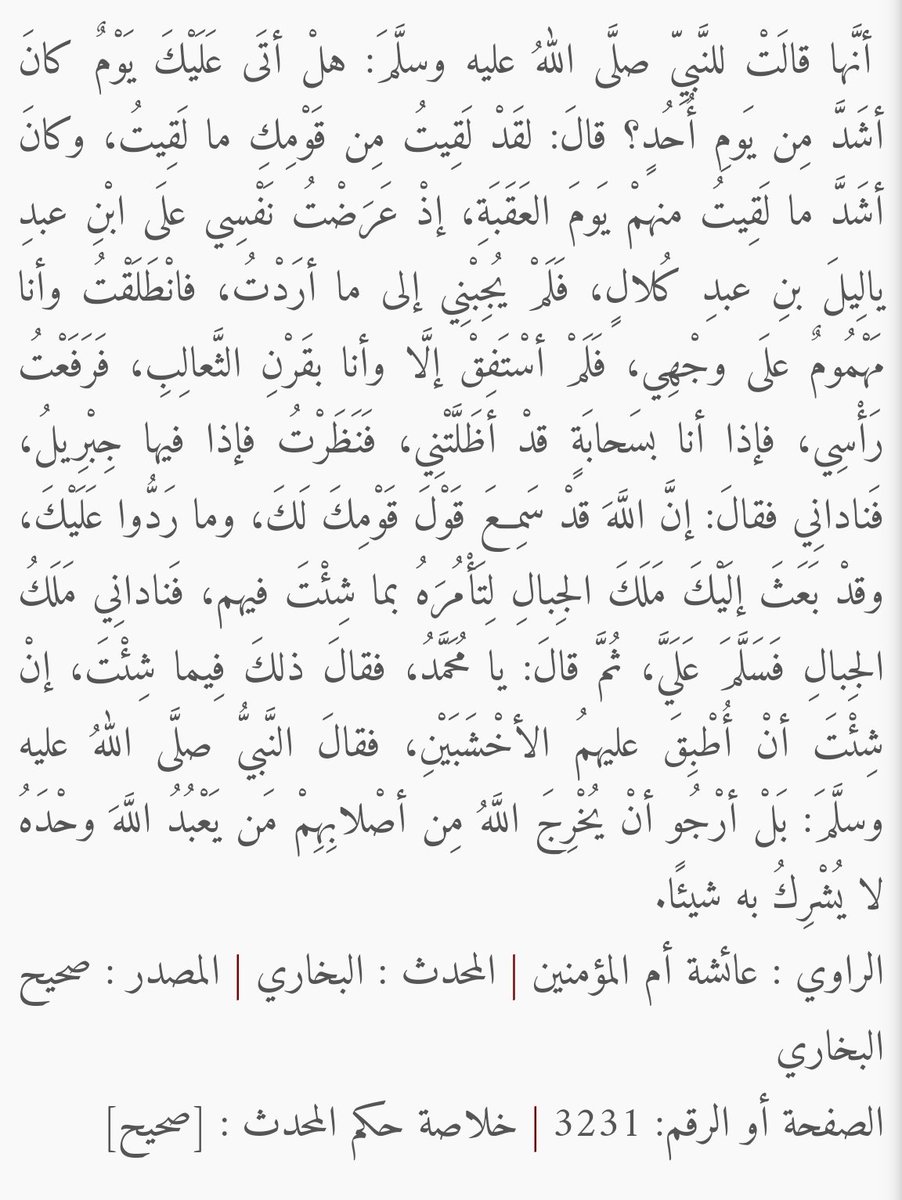 أنَّها قالَتْ للنَّبيِّ صلَّى اللهُ عليه وسلَّمَ: هلْ أتَى عَلَيْكَ يَوْمٌ كانَ
أشَدَّ مِن يَومِ أُحُدٍ؟ قالَ: لقَدْ لَقِيتُ مِن قَوْمِكِ ما لَقِيتُ، وكانَ
أشَدَّ ما لَقِيتُ منهمْ يَومَ العَقَبَةِ، إذْ عَرَضْتُ نَفْسِي علَى ابْنِ عبدِ
يالِيلَ بنِ عبدِ كُلالٍ، فَلَمْ يُجِبْنِي إلى ما أرَدْتُ، فانْطَلَقْتُ وأنا
مَهْمُومٌ علَى وجْهِي، فَلَمْ أسْتَفِقْ إلَّا وأنا بقَرْنِ الثَّعالِبِ، فَرَفَعْتُ
رَأْسِي، فإذا أنا بسَحابَةٍ قدْ أظَلَّتْنِي، فَنَظَرْتُ فإذا فيها جِبْرِيلُ،
فَنادانِي فقالَ: إنَّ اللَّهَ قدْ سَمِعَ قَوْلَ قَوْمِكَ لَكَ، وما رَدُّوا عَلَيْكَ،
وقدْ بَعَثَ إلَيْكَ مَلَكَ الجِبالِ لِتَأْمُرَهُ بما شِئْتَ فيهم، فَنادانِي مَلَكُ
الجِبالِ فَسَلَّمَ عَلَيَّ، ثُمَّ قالَ: يا مُحَمَّدُ، فقالَ ذلكَ فِيما شِئْتَ، إنْ
شِئْتَ أنْ أُطْبِقَ عليهمُ الأخْشَبَيْنِ، فقالَ النَّبيُّ صلَّى اللهُ عليه
وسلَّمَ: بَلْ أرْجُو أنْ يُخْرِجَ اللَّهُ مِن أصْلابِهِمْ مَن يَعْبُدُ اللَّهَ وحْدَهُ
لا يُشْرِكُ به شيئًا.
الراوي : عائشة أم المؤمنين | المحدث : البخاري | المصدر : صحيح
البخاري
الصفحة أو الرقم: 3231 | خلاصة حكم المحدث : [صحيح]